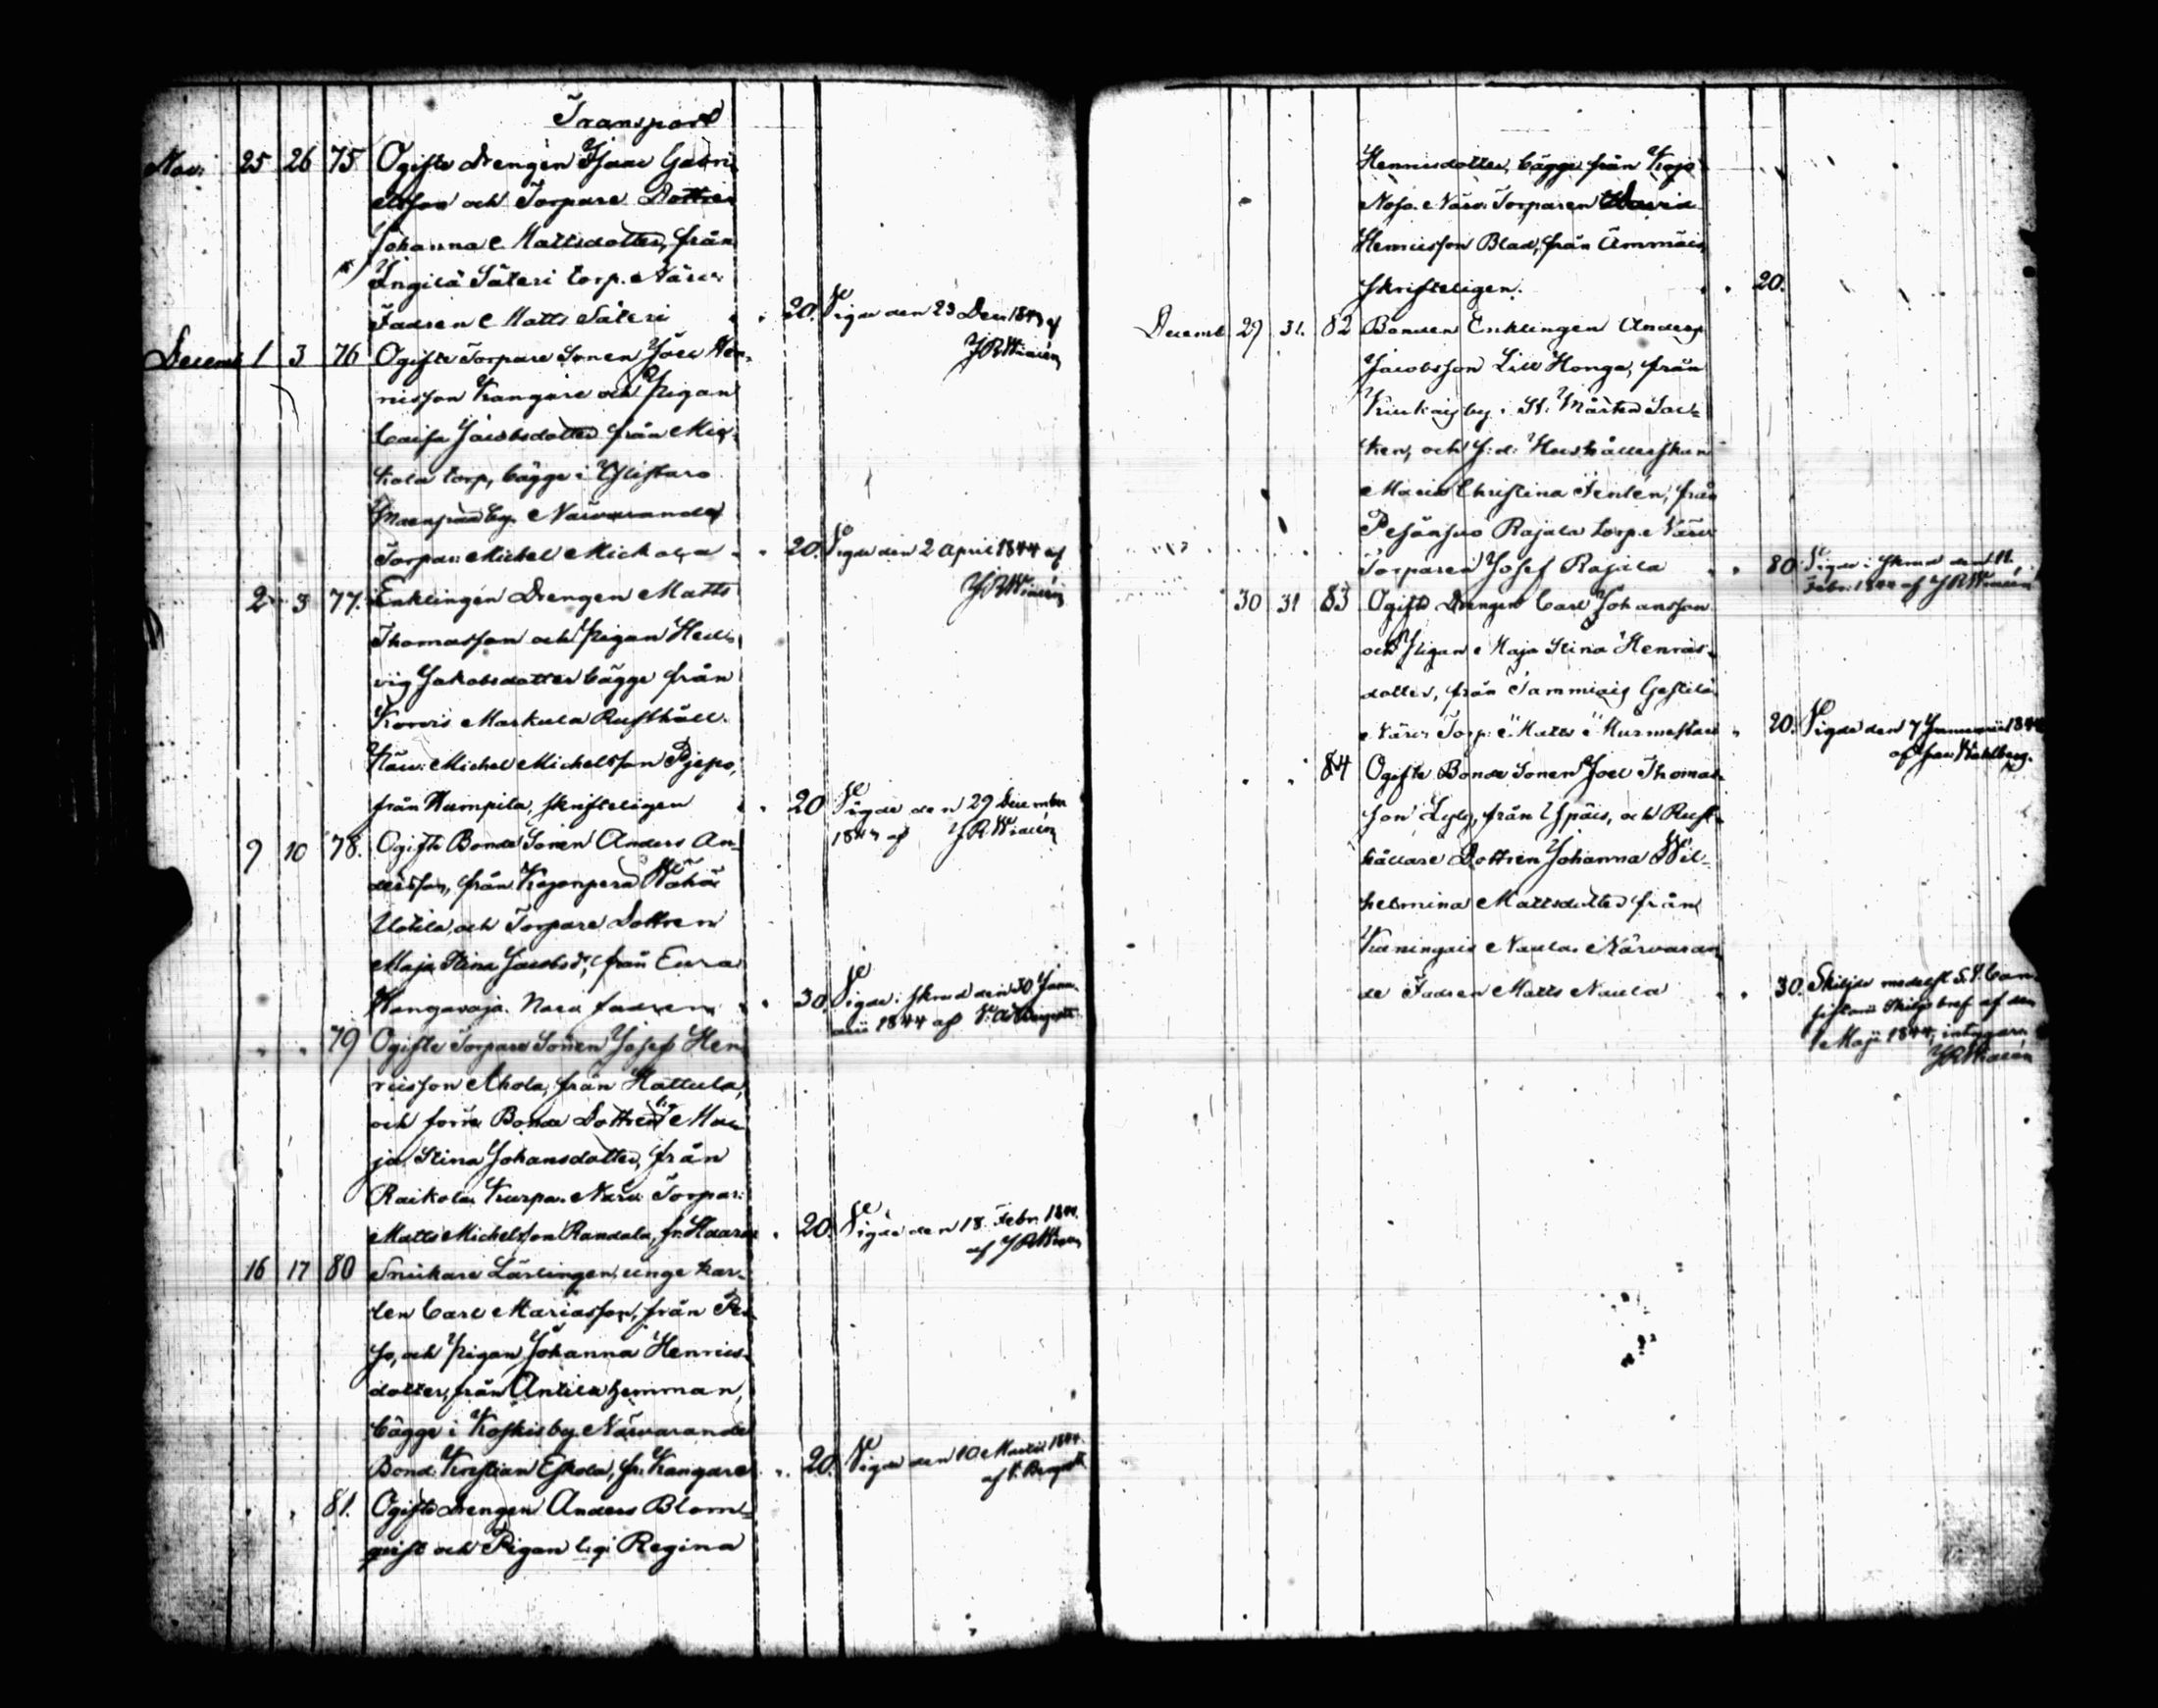 Transport
Nov: 25 26 75 Ogifte Drengen Isaac Gabri-
elsson och Torpare Dottren
Johanna Mattsdotter, från
Ingilä Säteri torp. Närv:
Fadren Matts Säteri " " 20. Vigde den 29 Decr 1843 af
JRWiden
Decemb 1 3 76 Ogifte Torpare Sonen Joel Hen-
ricsson Kangare och Pigan
Caisa Jacobsdotter från Mic-
kola torp, bägge i Ylistaro
by. Närvarande
Torpar: Michel Mickola " " 20. Vigde den 2 April 1844 af
2 3 77. Enklingen Drengen Matts
Thomasson och Pigan Hed-
vig Jakobsdotter bägge från
Korvis Markula Rusthåll.
Närv: Michel Michelsson Pjepo,
från Humpila, skrifteligen " " 20 Vigde den 29 December
1843 af
9 10 78. Ogifte Bonde Sonen Anders An-
dersson, från Kojonperä Wähä
Uotila, och Torpare Dottren
Maja Stina Jacobsd:r, från Eura
Kangavaja. Närv fadren " " 30. Vigde i Åkerud den 30 Janu-
arii 1844 af
" " 79 Ogifte Torpare Sonen Josef Hen
ricsson Ahola, från Hattula,
och förra Bonde Dottren Ma-
ja Stina Johansdotter, från
Raikola Kurpa. Närv: Torpar:
Matts Michelsson Randala, fr: Haara " 20. Vigde den 18 Febr. 1844.
af
16 17 80 Snickare Lärlingen, unge kar-
len Carl Mariasson, från Pes
jo, och Pigan Johanna Henrics-
dotter, från Antila hemman,
bägge i Koskis by. Närvarande
Bond. Kristian Eskola, fr: Kangare " 20. Vigde den 10 Martii 1844.
" " 81. Ogifte Drengen Anders Blom-
qvist och Pigan Regina
Henricsdotter, bägge från Kojo
Närv: Torparen David
Henricsson Blad, från Ämmäis,
skrifteligen. " " 20.
Decemb 29 31. 82 Bonden Enklingen Anders
Jacobsson Lill Honga, från
by i St: Mårtens Soc-
ken, och f:d: Hushållerskan
Maria Christina från
Pesänsuo Rajala torp. Närv
Torparen Josef Rajala " " 80. Vigde i Åkerud den 11
Febr. 1844 af
30 31 83 Ogifte Drengen Carl Johansson
och Pigan Maja Stina Henrics-
dotter, från Tammiais Gestilä
Närv: Torp: Matts " 20. Vigde den 7 Januarii 1844
af
" " 84 Ogifte Bonde Sonen Joel Thomas-
son Lyly, från Ypäis, och Rust-
hållare Dottren Johanna Wil-
helmina Mattsdotter från
Naula. Närvaran
de Fadren Matts Naula " " 30. Skiljde medelst
Skiljobref af den
Maji 1844, intygar